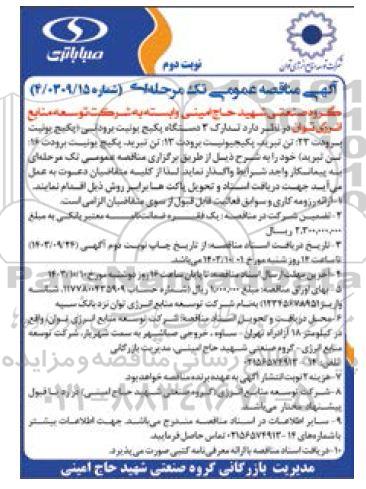 صباباتری
نوبت دوم
شرکت توسعه منابع انرژی توان
آگهی مناقصه عمومی تک مرحله‌ای (شماره ۴/۰۳۰۹/۱۵)
گروه صنعتی شهید حاج امینی وابسته به شرکت توسعه منابع
انرژی توان در نظر دارد تدارک ۳ دستگاه پکیج یونیت برودتی (پکیج یونیت
برودت ۲۳: تن تبرید، پکیج‌یونیت برودت ۱۳: تن تبرید، پکیج یونیت برودت ۱۶:
تن تبرید) خود را به شرح ذیل از طریق برگزاری مناقصه عمومی تک مرحله‌ای
به پیمانکار واجد شرایط واگذار نماید. لذا از کلیه متقاضیان دعوت به عمل
می‌آید جهت دریافت اسناد و تحویل پاکت ها برابر روش ذیل اقدام نمایند.
۱-ارائه رزومه کاری و سوابق فعالیت قابل قبول از سوی متقاضیان الزامی است.
۲-تضمین شرکت در مناقصه: یک فقره ضمانت‌نامه معتبر بانکی به مبلغ
۲,۳۰۰,۰۰۰,۰۰۰ ریال
۳-تاریخ دریافت اسناد مناقصه: از تاریخ چاپ نوبت دوم آگهی (۱۴۰۳/۰۹/۲۴)
تا ساعت ۱۴ روز شنبه مورخ ۱۴۰۳/۱۰/۰۱ می‌باشد.
۴-آخرین مهلت ارسال اسناد مناقصه: تا پایان ساعت ۱۶ روز دوشنبه مورخ ۱۴۰۳/۱۰/۱۰
۵-بهای اوراق مناقصه: مبلغ ۱,۰۰۰,۰۰۰ ریال (شماره حساب ۱۱۷۷۸۰۰۹۳۳۵۹۰۹، شناسه
واریز ۱۲۳۴۵۶۷۸۹۵۱) به‌نام شرکت توسعه منابع انرژی توان نزد بانک سپه
۶-محل دریافت و تحویل اسناد مناقصه: شرکت توسعه منابع انرژی توان، واقع
در کیلومتر ۱۸ آزادراه تهران - ساوه، خروجی صباشهر به سمت شهریار، شرکت توسعه
منابع انرژی - گروه صنعتی شهید حاج امینی، مدیریت بازرگانی
تلفن: ۱۴-۰۲۱۵۶۵۷۴۹۱۳
۷-هزینه ۲ نوبت انتشار آگهی به عهده برنده مناقصه خواهد بود.
۸-شرکت توسعه منابع انرژی (گروه صنعتی شهید حاج امینی) در رد یا قبول
پیشنهاد مختار می‌باشد.
۹- سایر اطلاعات در اسناد مناقصه مندرج می‌باشد. جهت اطلاعات بیشتر
با شماره‌های ۱۴-۰۲۱۵۶۵۷۴۹۱۳ تماس حاصل فرمایید.
۱۰-دریافت اسناد مناقصه با ارائه معرفی‌نامه کتبی صورت می‌پذیرد.
مدیریت بازرگانی گروه صنعتی شهید حاج امینی